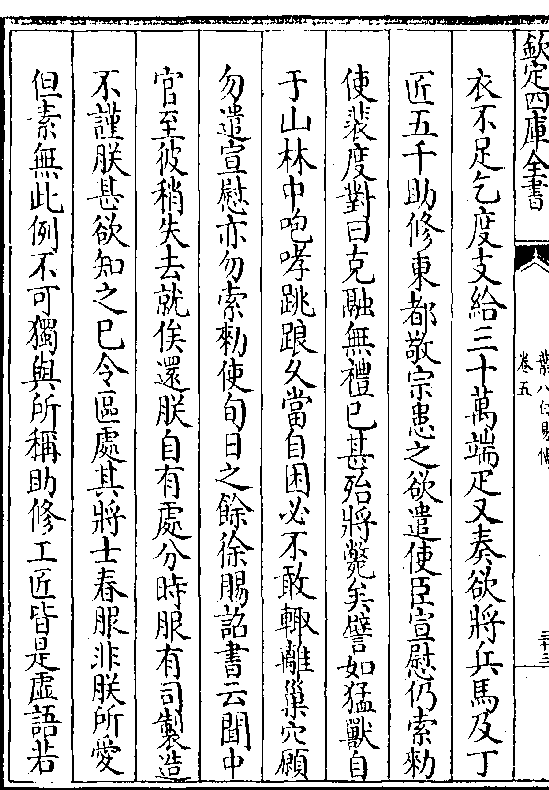 欽定四庫全書
卷五
衣不足乞度支給三十萬端疋又奏欲將兵馬及丁
匠五千助修東都敬宗患之欲遣使臣宣慰仍索勅
使裴度對曰克融無禮已甚殆將斃矣譬如猛獸自
于山林中咆哮跳踉久當自困必不敢輙離巢穴願
勿遣宣慰亦勿索勅使旬日之餘徐賜詔書云聞中
官至彼稍失去就俟還朕自有處分時服有司製造
不謹朕甚欲知之已令區處其將士春服非朕所愛
但素無此例不可獨與所稱助修工匠皆是虛語若